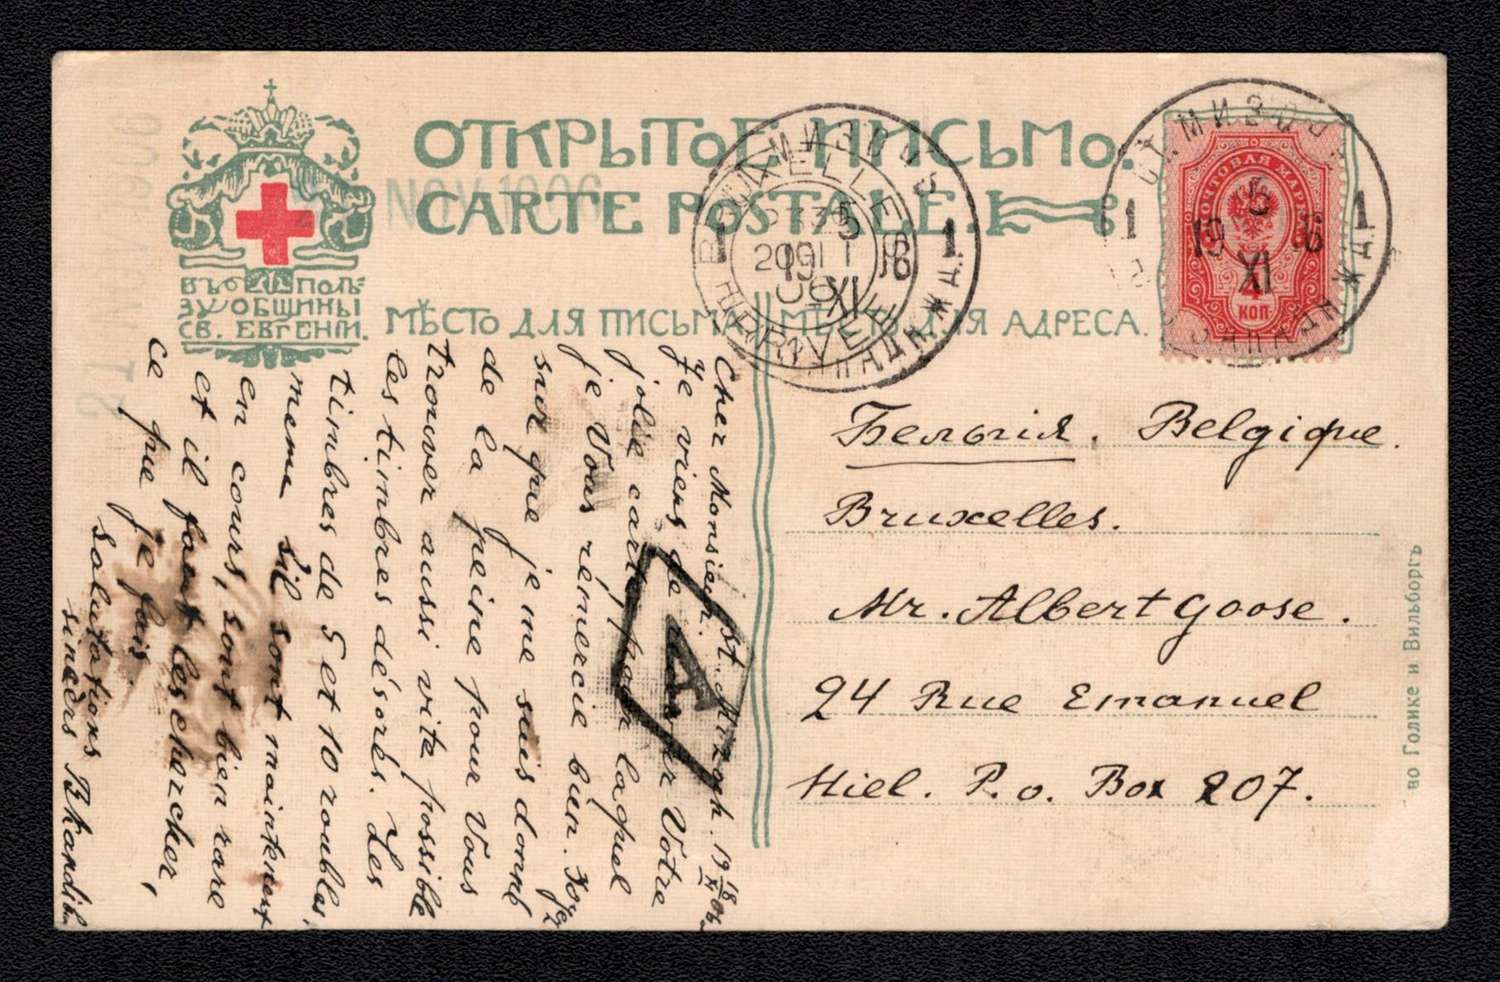 ОТКРЫТОЕ ПИСЬМО.
CARTE POSTALE.
NOV 1906
ВЪ ПОЛЬ-
ЗУ ОБЩИНЫ
СВ. ЕВГЕНІИ.
МѢСТО ДЛЯ ПИСЬМА
МѢСТО ДЛЯ АДРЕСА.
BRUXELLES
ARRIVEE
СТ. МИЗОЧЪ
1 1
5
XI
ПОЧТОВАЯ МАРКА
4
КОП
СТ. МИЗОЧЪ
1 19 6 1
5
XI
Cher Monsieur.
Je viens de
jolie carte par laquel
je Vous remercie bien.
suis donné
de la peine pour Vous
trouver aussi vite possible
les timbres désorés. Les
timbres de 5 et 10 roubles,
meme s'il sont maintenent
en cours, sont bien rare
et il faut les chercher,
ce que je fais
salutations
A
Бельгія. Belgique.
Bruxelles.
Mr. Albert Goose.
24 Rue Emanuel
Hiel. P. o. Box 207.
во Голике и Вильборгъ